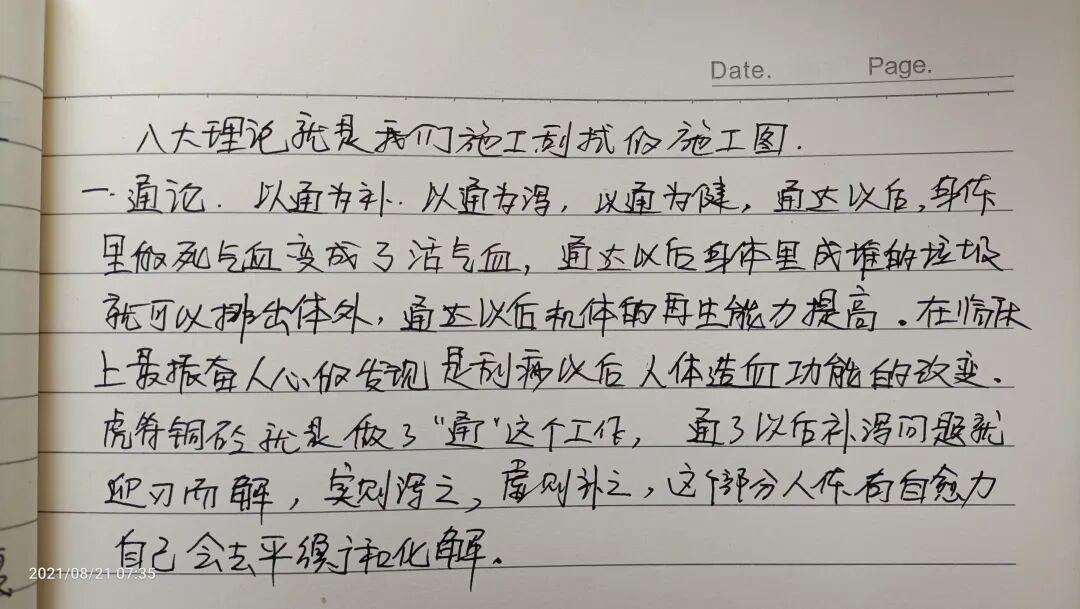 Date. Page.
八大理论就是我们施工刮拭的施工图.
一.通论.以通为补.以通为泻,以通为健,通达以后,身体
里的死气血变成了活气血,通达以后身体里成堆的垃圾
就可以挪出体外,通达以后机体的再生能力提高。在临床
上最振奋人心的发现是刮痧以后人体造血功能的改变.
虎符铜砭就是做了“通”这个工作,通了以后补泻问题就
迎刃而解,实则泻之,虚则补之,这个部分人体有自愈力
自己会去平缓和化解。
2021/08/21 07:35